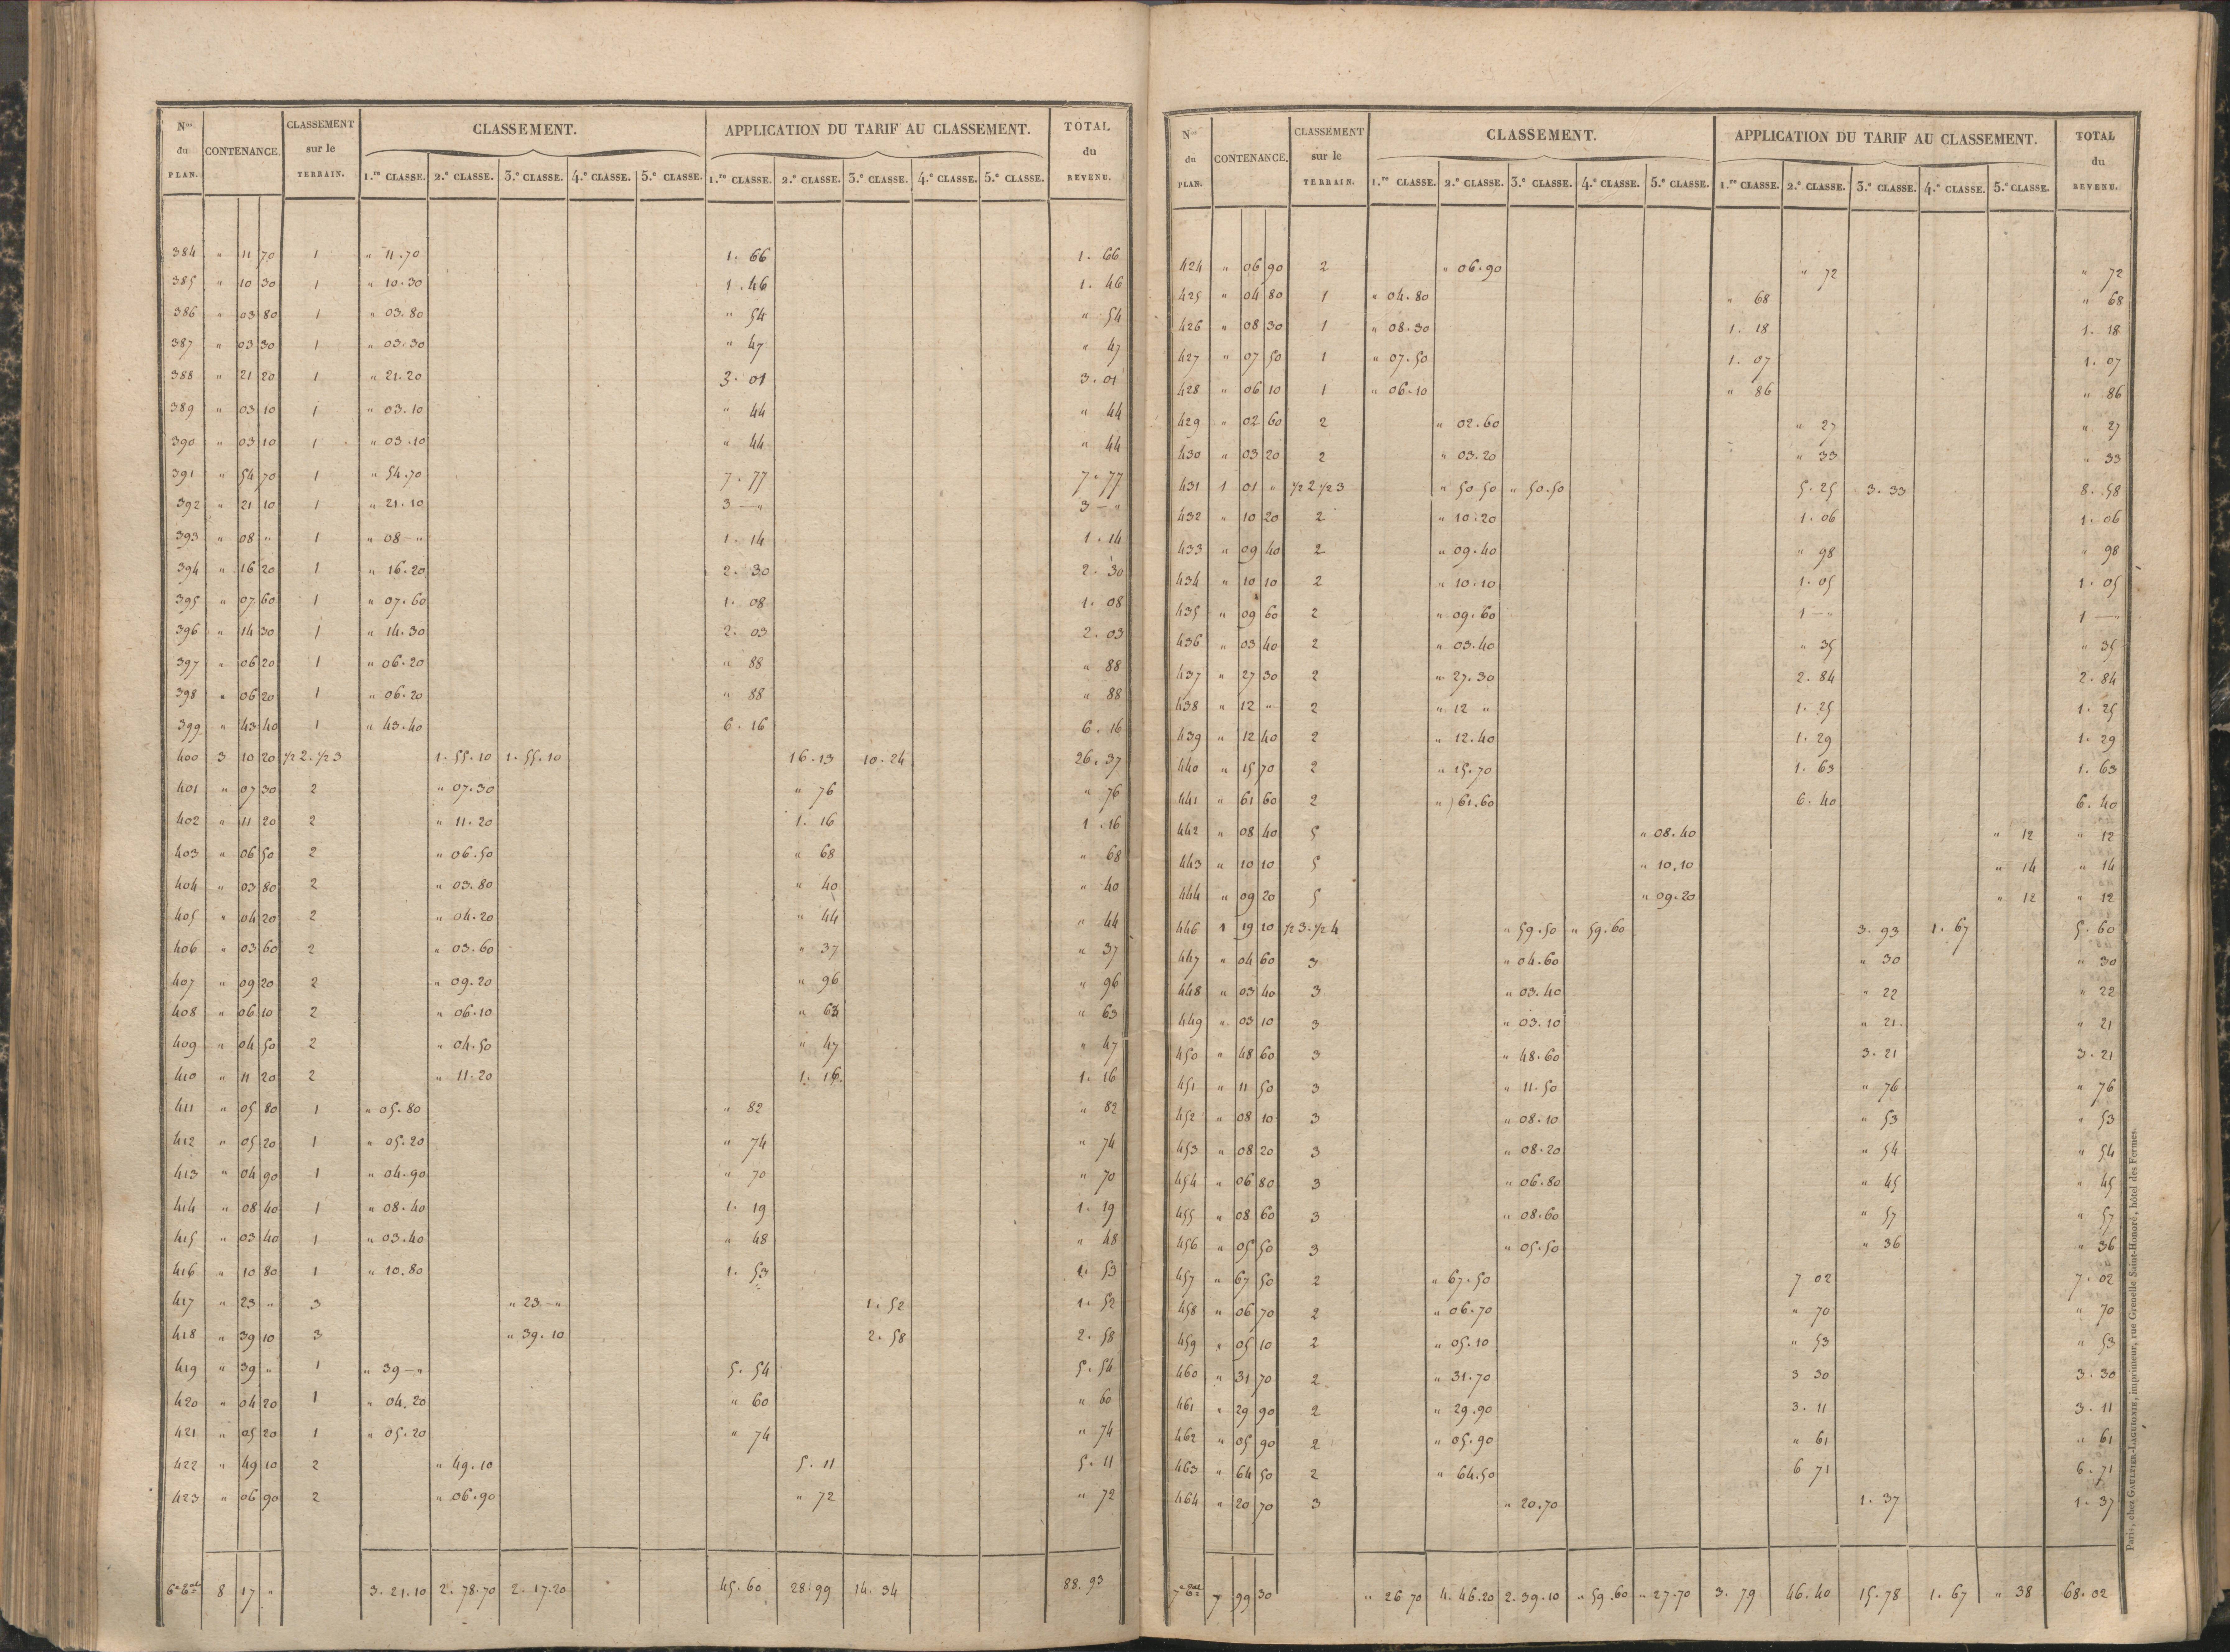 Nos du PLAN. CONTENANCE. CLASSEMENT sur le TERRAIN. CLASSEMENT. APPLICATION DU TARIF AU CLASSEMENT. TOTAL du REVENU.
1.re CLASSE. 2.e CLASSE. 3.e CLASSE. 4.e CLASSE. 5.e CLASSE. 1.re CLASSE. 2.e CLASSE. 3.e CLASSE. 4.e CLASSE. 5.e CLASSE.
384 " 11 70 1 " 11.70 1. 66 1. 66
385 " 10 30 1 " 10.30 1. 46 1. 46
386 " 03 80 1 " 03.80 " 54 " 54
387 " 03 30 1 " 03.30 " 47 " 47
388 " 21 20 1 " 21.20 3. 01 3. 01
389 " 03 10 1 " 03.10 " 44 " 44
390 " 03 10 1 " 03.10 " 44 " 44
391 " 54 70 1 " 54.70 7. 77 7. 77
392 " 21 10 1 " 21.10 3 — " 3 — "
393 " 08 " 1 " 08 — " 1. 14 1. 14
394 " 16 20 1 " 16.20 2. 30 2. 30
395 " 07 60 1 " 07.60 1. 08 1. 08
396 " 14 30 1 " 14.30 2. 03 2. 03
397 " 06 20 1 " 06.20 " 88 " 88
398 " 06 20 1 " 06.20 " 88 " 88
399 " 43 40 1 " 43.40 6. 16 6. 16
400 3 10 20 1/2 2. 1/2 3 1. 55. 10 1. 55. 10 16. 13 10. 24 26. 37
401 " 07 30 2 " 07.30 " 76 " 76
402 " 11 20 2 " 11.20 1. 16 1. 16
403 " 06 50 2 " 06.50 " 68 " 68
404 " 03 80 2 " 03.80 " 40 " 40
405 " 04 20 2 " 04.20 " 44 " 44
406 " 03 60 2 " 03.60 " 37 " 37
407 " 09 20 2 " 09.20 " 96 " 96
408 " 06 10 2 " 06.10 " 63 " 63
409 " 04 50 2 " 04.50 " 47 " 47
410 " 11 20 2 " 11.20 1. 16. 1. 16
411 " 05 80 1 " 05.80 " 82 " 82
412 " 05 20 1 " 05.20 " 74 " 74
413 " 04 90 1 " 04.90 " 70 " 70
414 " 08 40 1 " 08.40 1. 19 1. 19
415 " 03 40 1 " 03.40 " 48 " 48
416 " 10 80 1 " 10.80 1. 53 1. 53
417 " 23 " 3 " 23 — " 1. 52 1. 52
418 " 39 10 3 " 39. 10 2. 58 2. 58
419 " 39 " 1 " 39 — " 5. 54 5. 54
420 " 04 20 1 " 04. 20 " 60 " 60
421 " 05 20 1 " 05.20 " 74 " 74
422 " 49 10 2 " 49.10 5. 11 5. 11
423 " 06 90 2 " 06.90 " 72 " 72
8 17 " 3. 21. 10 2. 78. 70 2. 17. 20 45. 60 28. 99 14. 34 88. 93
Nos du PLAN. CONTENANCE. CLASSEMENT sur le TERRAIN. CLASSEMENT. APPLICATION DU TARIF AU CLASSEMENT. TOTAL du REVENU.
1.re CLASSE. 2.e CLASSE. 3.e CLASSE. 4.e CLASSE. 5.e CLASSE. 1.re CLASSE. 2.e CLASSE. 3.e CLASSE. 4.e CLASSE. 5.e CLASSE.
424 " 06 90 2 " 06.90 " 72 " 72
425 " 04 80 1 " 04.80 " 68 " 68
426 " 08 30 1 " 08.30 1. 18 1. 18
427 " 07 50 1 " 07.50 1. 07 1. 07
428 " 06 10 1 " 06.10 " 86 " 86
429 " 02 60 2 " 02.60 " 27 " 27
430 " 03 20 2 " 03.20 " 33 " 33
431 1 01 " 1/2 2 1/2 3 " 50 50 " 50.50 5. 25 3. 33 8. 58
432 " 10 20 2 " 10.20 1. 06 1. 06
433 " 09 40 2 " 09.40 " 98 " 98
434 " 10 10 2 " 10.10 1. 05 1. 05
435 " 09 60 2 " 09.60 1 — " 1 — "
436 " 03 40 2 " 03.40 " 35 " 35
437 " 27 30 2 " 27.30 2. 84 2. 84
438 " 12 " 2 " 12 " 1. 25 1. 25
439 " 12 40 2 " 12.40 1. 29 1. 29
440 " 15 70 2 " 15.70 1. 63 1. 63
441 " 61 60 2 " 61.60 6. 40 6. 40
442 " 08 40 5 " 08.40 " 12 " 12
443 " 10 10 5 " 10.10 " 14 " 14
444 " 09 20 5 " 09.20 " 12 " 12
446 1 19 10 1/2 3. 1/2 4 " 59.50 " 59.60 3. 93 1. 67 5. 60
447 " 04 60 3 " 04.60 " 30 " 30
448 " 03 40 3 " 03.40 " 22 " 22
449 " 03 10 3 " 03.10 " 21. " 21
450 " 48 60 3 " 48.60 3. 21 3. 21
451 " 11 50 3 " 11.50 " 76 " 76
452 " 08 10 3 " 08.10 " 53 " 53
453 " 08 20 3 " 08.20 " 54 " 54
454 " 06 80 3 " 06.80 " 45 " 45
455 " 08 60 3 " 08.60 " 57 " 57
456 " 05 50 3 " 05.50 " 36 " 36
457 " 67 50 2 " 67.50 7 02 7. 02
458 " 06 70 2 " 06.70 " 70 " 70
459 " 05 10 2 " 05.10 " 53 " 53
460 " 31 70 2 " 31.70 3 30 3. 30
461 " 29 90 2 " 29.90 3. 11 3. 11
462 " 05 90 2 " 05.90 " 61 " 61
463 " 64 50 2 " 64.50 6 71 6. 71
464 " 20 70 3 " 20.70 1. 37 1. 37
7 99 30 " 26 70 4. 46. 20 2. 39. 10 " 59. 60 " 27. 70 3. 79 46. 40 15. 78 1. 67 " 38 68. 02
Paris, chez GAULTIER-LAGUIONIE, imprimeur, rue Grenelle Saint-Honoré, hôtel des Fermes.